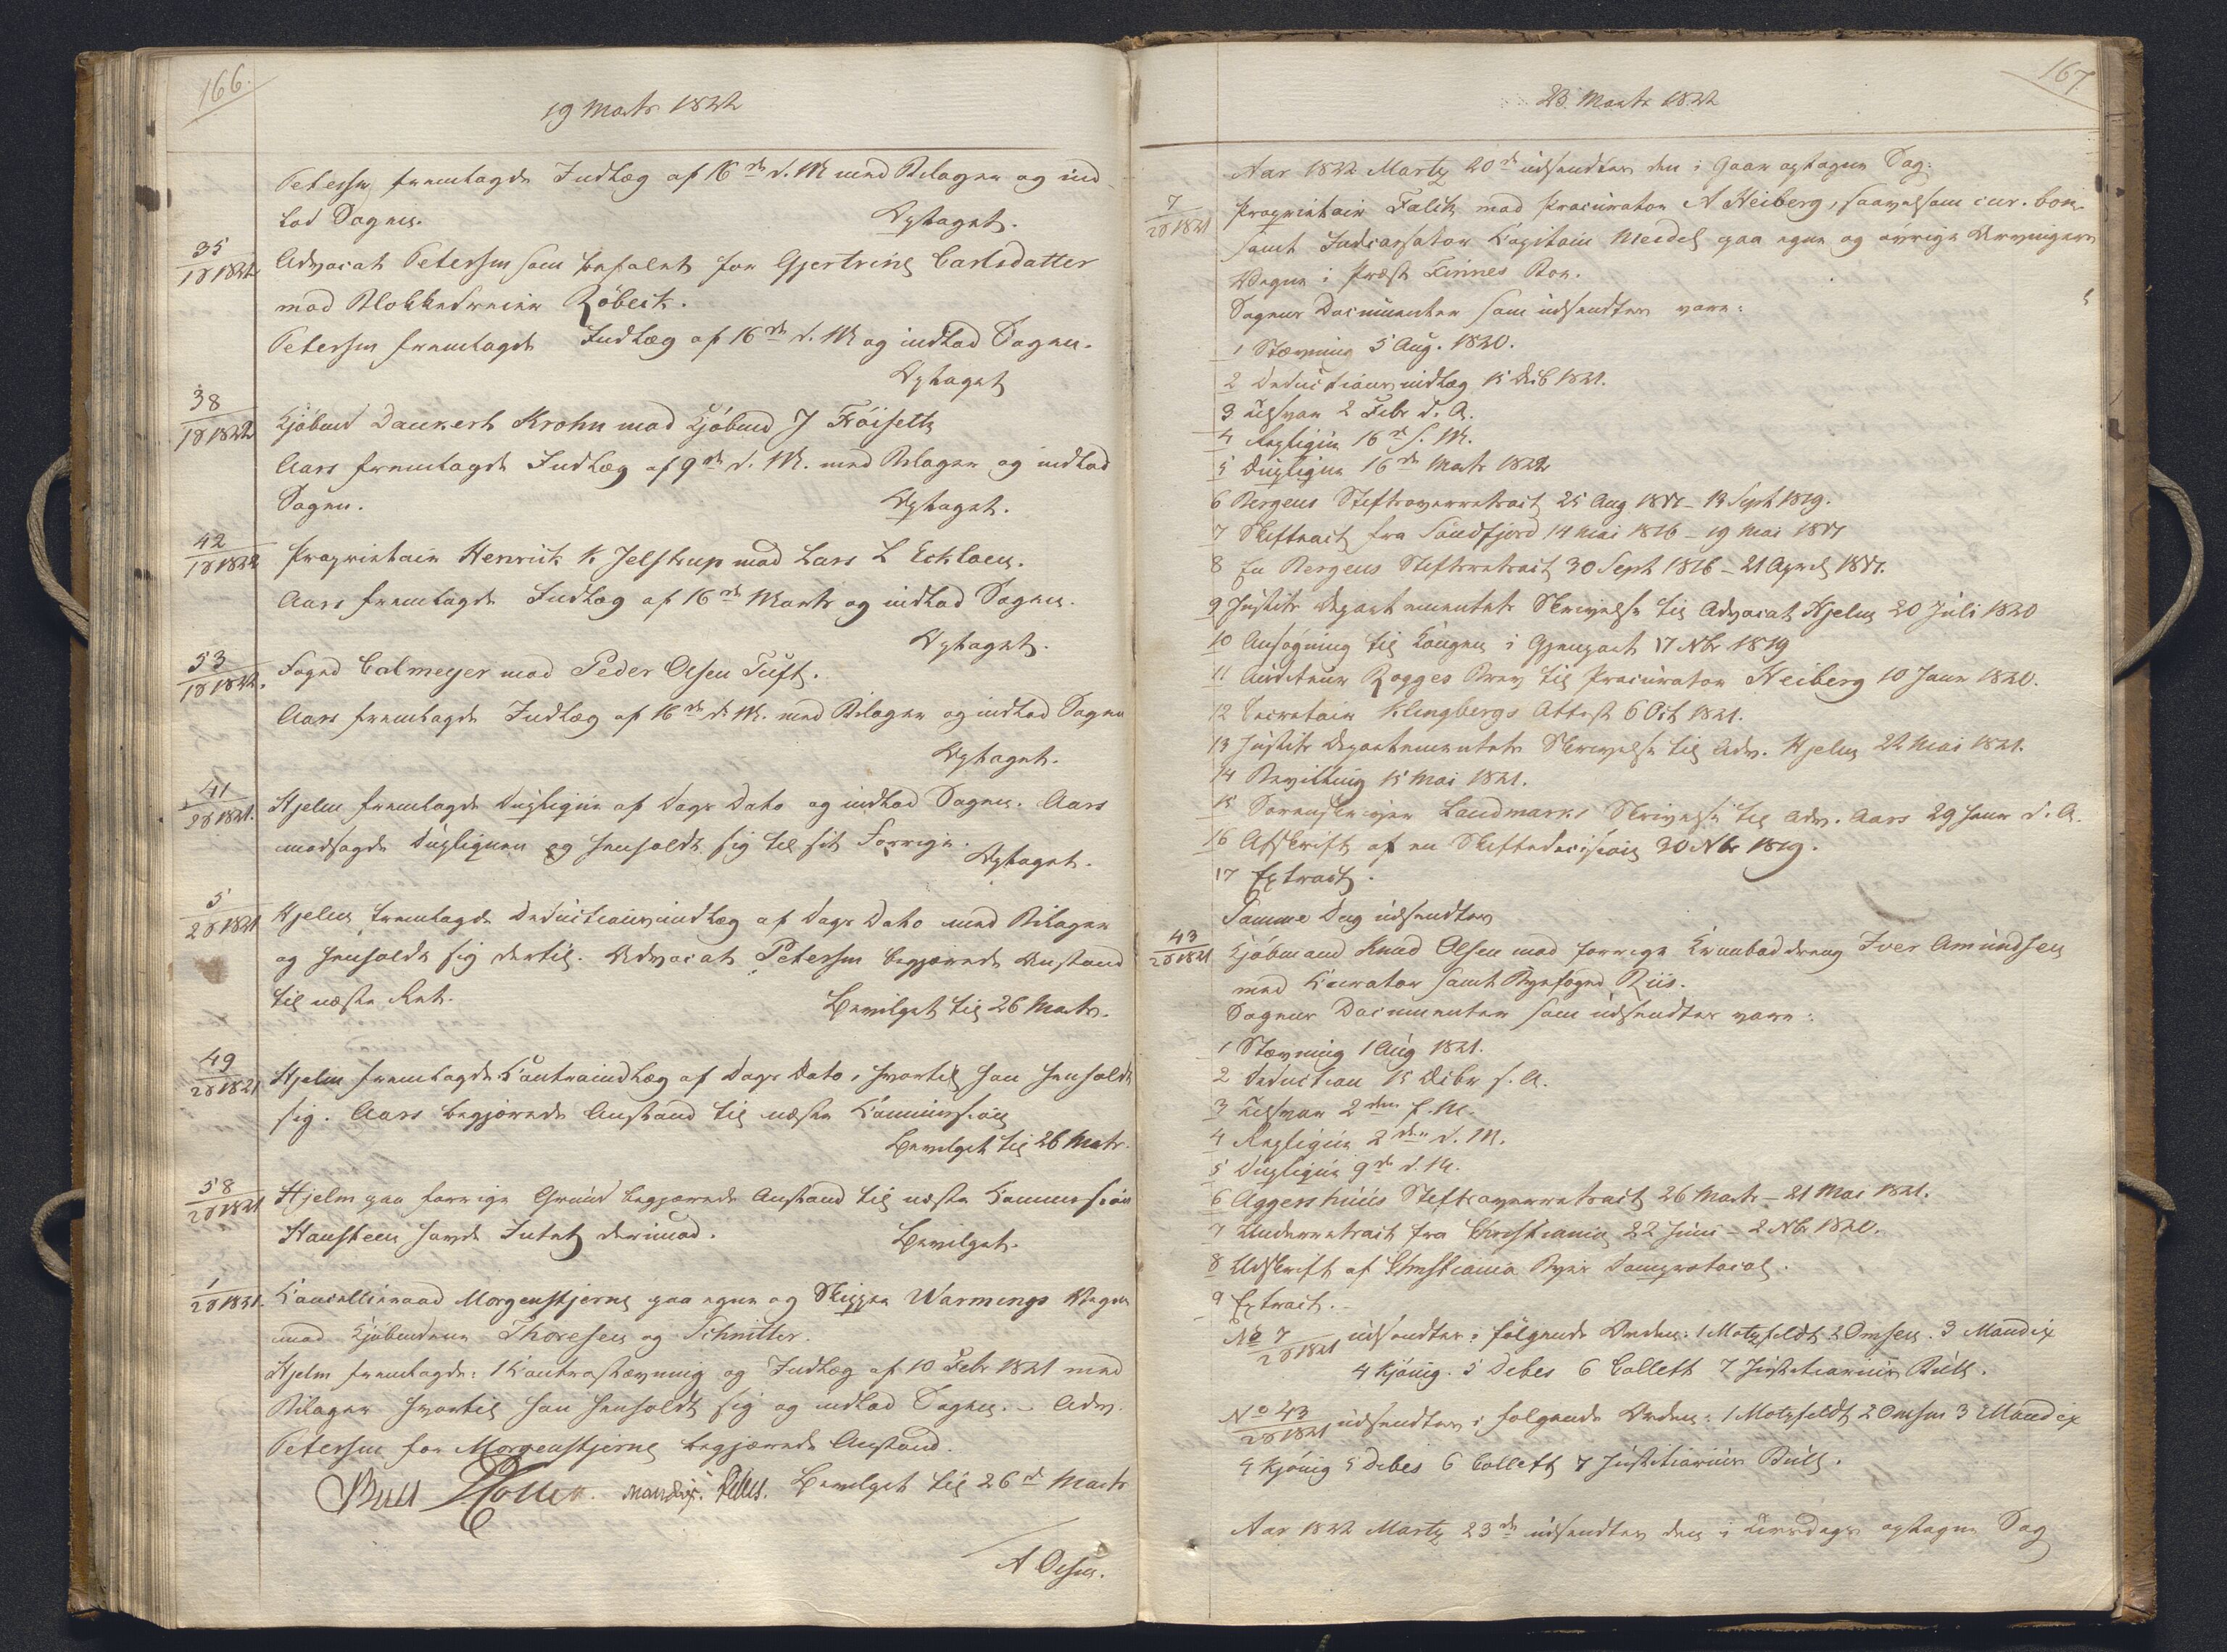 166.
19 Marts 1822
Petersen fremlagde Indlæg af 16de d. M. med Bilager og ind-
lod Sagen.
Optaget.
35
1 S 1822
Advocat Petersen som befalet for Gjertrine Carlsdatter
mod Blokkedreier Röbeck.
Petersen fremlagde Indlæg af 16de d. M og indlod Sagen.
Optaget
38
1 S 1822
Kjöbmd Danckert Krohn mod Kjöbmd J Föisett
Aars fremlagde Indlæg af 9de d. M. med Bilager og indlod
Sagen.
Optaget.
42
1 S 1822
Proprietair Henrich K Jelstrup mod Lars L Ecklaen.
Aars fremlagde Indlæg af 16de Marts og indlod Sagen.
Optaget.
53
1 S 1822.
Foged Calmeyer mod Peder Olsen Tuft.
Aars fremlagde Indlæg af 16de d. M. med Bilager og indlod Sagen
Optaget.
41
2 S 1821.
Hjelm fremlagde Dupliqve af Dags Dato og indlod Sagen. Aars
modsagde Dupliqven og henholdt sig til sit Forrige.
Optaget.
5
2 S 1821
Hjelm fremlagde Deductionsindlæg af Dags Dato med Bilager
og henholdt sig dertil. Advocat Petersen begjærede Anstand
til næste Ret.
Bevilget til 26 Marts.
49
2 S 1821
Hjelm fremlagde Contraindlæg af Dags Dato, hvortil han henholdt
sig. Aars begjærede Anstand til næste Commission
Bevilget til 26 Marts.
58
2 S 1821
Hjelm paa forrige Grund begjærede Anstand til næste Commission
Hansteen havde Intet derimod.
Bevilget.
1
2 S 1821.
Cancelliraad Morgenstjerne paa egne og Skipper Warmings Vegne
mod Kjöbmdene Thoresen og Schnitler.
Hjelm fremlagde: 1 Contrastævning og Indlæg af 10 Febr 1821 med
Bilager hvortil han henholdt sig og indlod Sagen. - Adv.
Petersen for Morgenstjerne begjærede Anstand.
Bull Mandix. Debes. Bevilget til 26de Marts
A Omsen.
167
23 Marts 1822
Aar 1822 Martz 20de udsendtes den i Gaar optagne Sag:
7
2 S 1821
Proprietair Falck mod Procurator A Heiberg, saavelsom cur. bon.
samt Indcassator Capitain Meidel paa egne og övrige Arvingers
Vegne i Præst Finnes Boe.
Sagens Documenter som udsendtes vare:
1 Stævning 5 Aug. 1820.
2 Deductionsindlæg 15 Decb 1821.
3 Tilsvar 2 Febr d. A.
4 Repliqve 16de s. M.
5 Dupliqve 16de Marts 1822
6 Bergens Stiftsoverretsact 25 Aug 1817 - 13 Sept 1819.
7 Skifteact fra Söndfjord 14 Mai 1816 - 19 Mai 1817
8 En Bergens Stiftsretsact 30 Sept 1816 - 21 April 1817.
9 Justits Departementets Skrivelse til Advocat Hjelm 20 Juli 1820
10 Ansögning til Kongen i Gjenpart 17 Nbr 1819
11 Auditeur Rogges Brev til Procurator Heiberg 10 Janr 1820.
12 Secretair Klingbergs Attest 6 Oct 1821.
13 Justits Departementets Skrivelse til Adv. Hjelm 22 Mai 1821.
14 Bevilling 15 Mai 1821.
15 Sorenskriver Landmarks Skrivelse til Adv. Aars 29 Janr d. A.
16 Afskrift af en Skiftedecision 30 Nbr 1819.
17 Extract.
Samme Dag udsendtes
43
2 S 1821
Kjöbmand Knud Olsen mod forrige Krambaddreng Iver Amundsen
med Curator samt Byefoged Riis.
Sagens Documenter som udsendtes vare:
1 Stævning 1 Aug 1821.
2 Deduction 15 Decbr s. A.
3 Tilsvar 2den f. M.
4 Repliqve 2den d. M.
5 Dupliqve 9de d. M.
6 Aggershuus Stiftsoverretsact 26 Marts - 21 Mai 1821.
7 Underretsact fra Christiania 22 Juni - 2 Nbr 1820.
8 Udskrift af Christiania Byes Domprotocol.
9 Extract.
No 7
2 S 1821 udsendtes i fölgende Orden: 1 Motzfeldt 2 Omsen. 3 Mandix
4 Kjönig. 5 Debes 6 Collett 7 Justitiarius Bull.
No 43
2 S 1821 udsendtes i fölgende Orden: 1 Motzfeldt 2 Omsen 3 Mandix
4 Kjönig 5 Debes 6 Collett 7 Justitiarius Bull.
Aar 1822 Martz 23de udsendtes den i Tirsdags optagne Sag